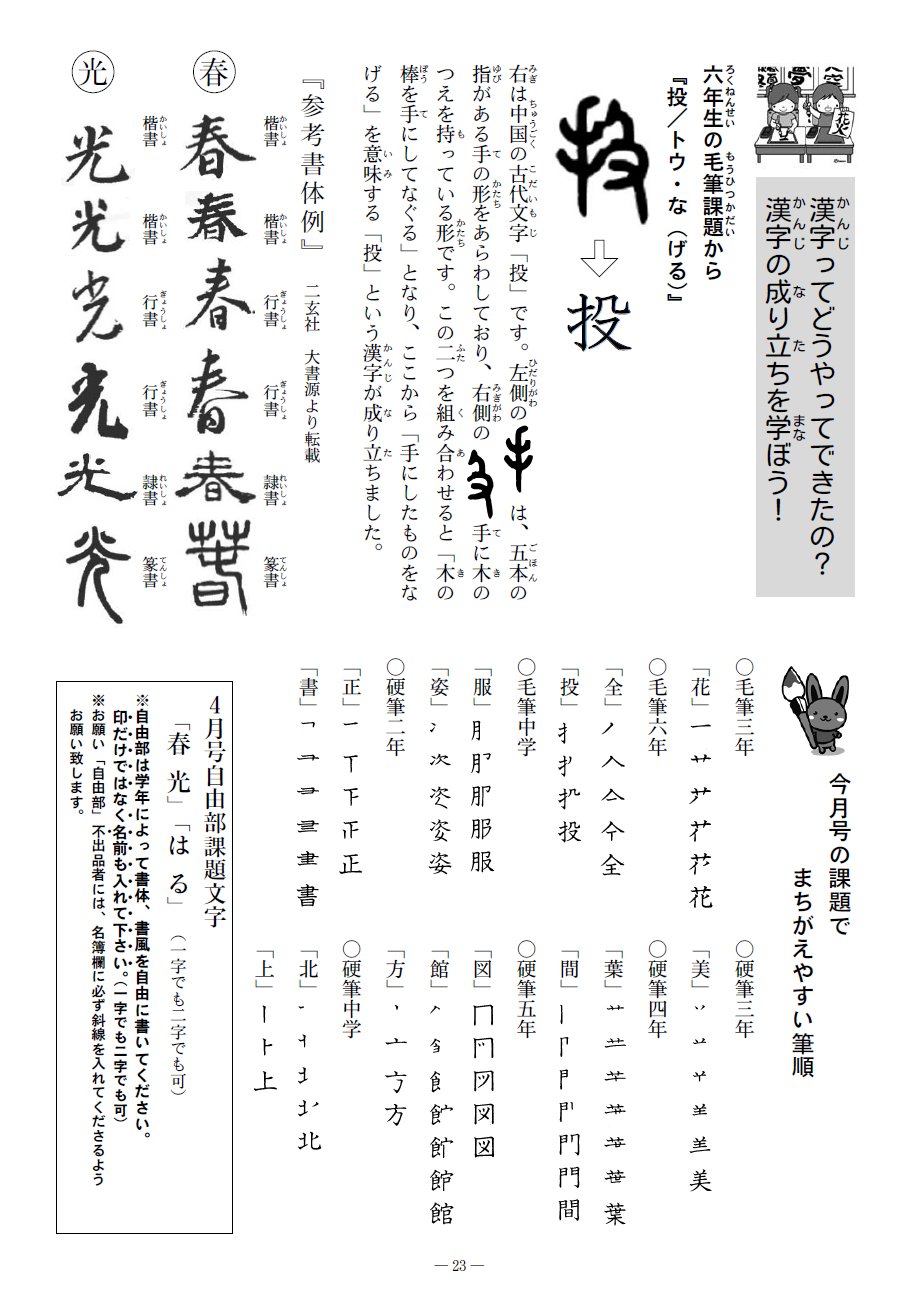 漢字ってどうやってできたの？
漢字の成り立ちを学ぼう！
六年生の毛筆課題から
『投／トウ・な（げる）』
投
右は中国の古代文字「投」です。左側の は、五本の
指がある手の形をあらわしており、右側の 手に木の
つえを持っている形です。この二つを組み合わせると「木の
棒を手にしてなぐる」となり、ここから「手にしたものをな
げる」を意味する「投」という漢字が成り立ちました。
『参考書体例』 二玄社 大書源より転載
春
楷書 楷書 行書 行書 隷書 篆書
春 春 春 春 春 春
光
楷書 楷書 行書 行書 隷書 篆書
光 光 光 光 光 光
今月号の課題で
まちがえやすい筆順
○毛筆三年
「花」
花
○毛筆六年
「全」
全
「投」
投
○毛筆中学
「服」
服
「姿」
姿
○硬筆二年
「正」
正
「書」
書
○硬筆三年
「美」
美
○硬筆四年
「葉」
葉
「間」
間
○硬筆五年
「図」
図
「館」
館
「方」
方
○硬筆中学
「北」
北
「上」
上
4月号自由部課題文字
「春 光」「は る」（一字でも二字でも可）
※自由部は学年によって書体、書風を自由に書いてください。
印だけではなく名前も入れて下さい。（一字でも二字でも可）
※お願い「自由部」不出品者には、名簿欄に必ず斜線を入れてくださるよう
お願い致します。
— 23 —